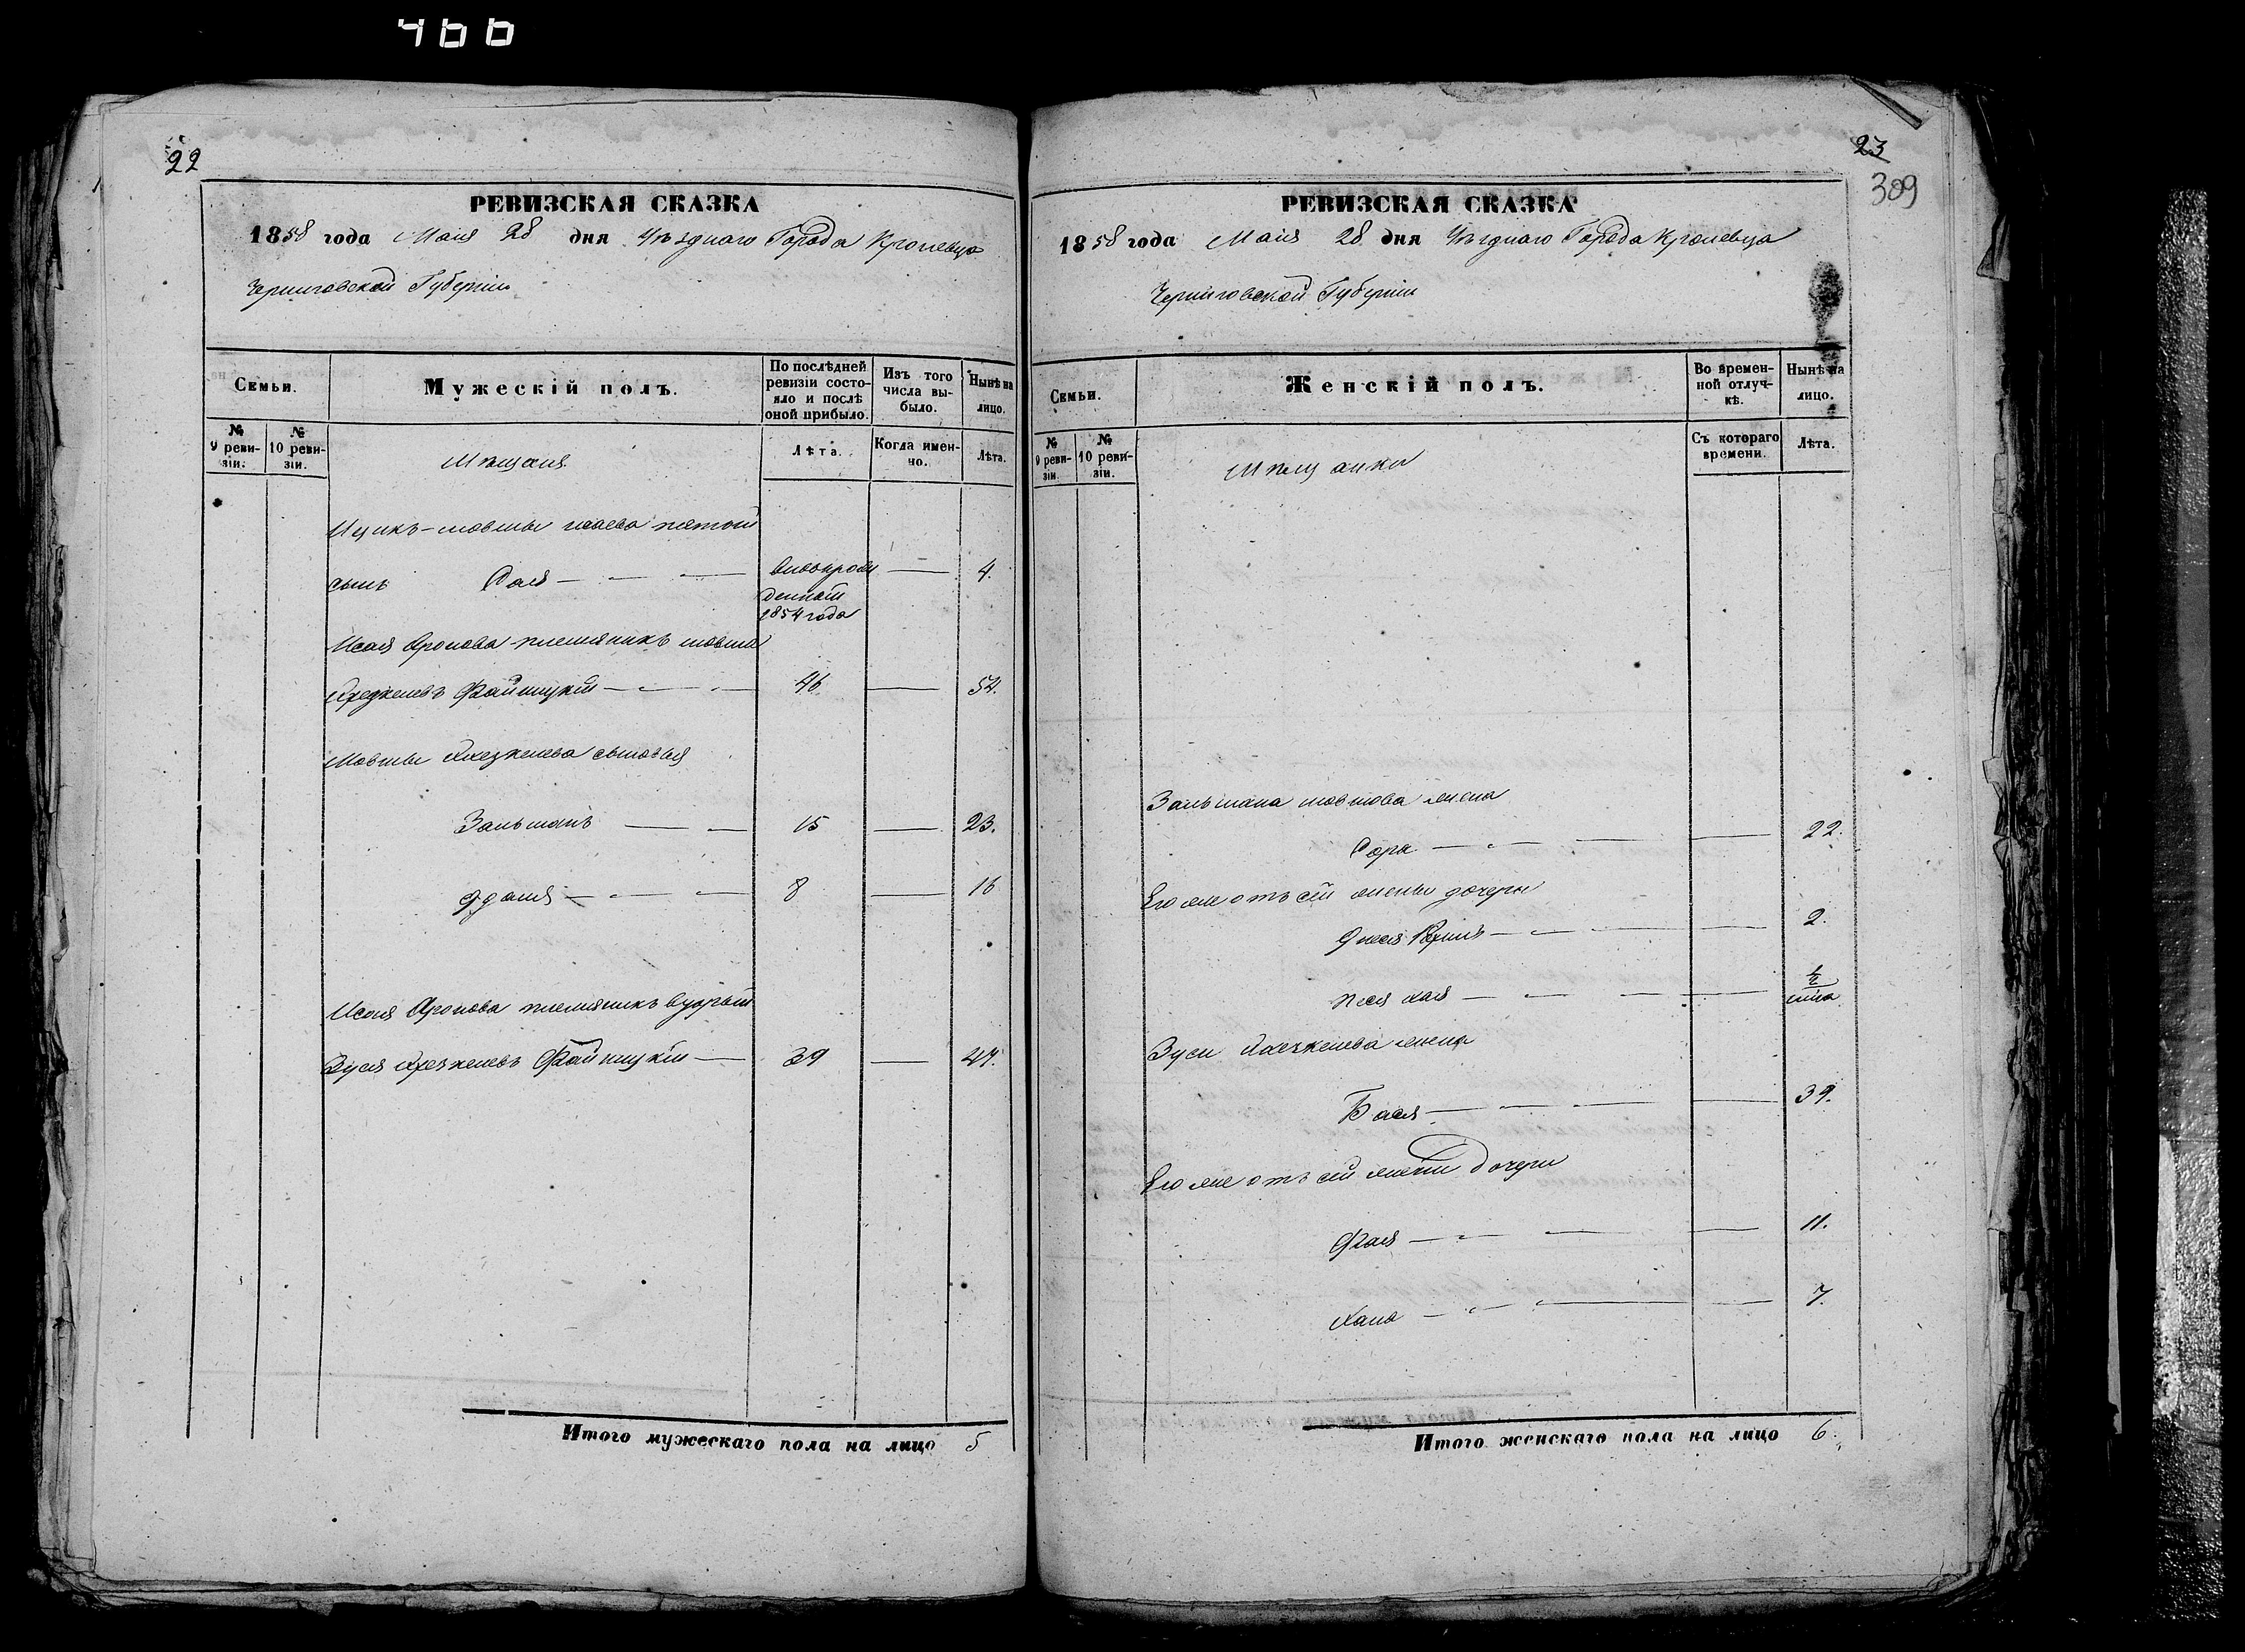 466
22
РЕВИЗСКАЯ СКАЗКА
1858 года Маія 28 дня Уѣзднаго Города Кролевца
Черниговской Губерніи
Семьи.
Мужескій полъ.
По послѣдней ревизіи состояло и послѣ оной прибыло.
Изъ того числа выбыло.
Нынѣ на лицо.
№ 9 ревизіи.
№ 10 ревизіи.
Мѣщане
Лѣта.
Когда именно.
Лѣта.
Ицикъ-мовши пятой
сынъ вновьрож 4.
денный
1854 года
Исая Аронова племяникъ мовша
Файницкій 46 54.
Мовши сыновья
Зальманъ 15 23.
8 16
Исая Аронова племяникъ вторый
Зуся Файницкій 39 47.
Итого мужескаго пола на лицо 5
23
309
РЕВИЗСКАЯ СКАЗКА
1858 года Маія 28 дня Уѣзднаго Города Кролевца
Черниговской Губерніи
Семьи.
Женскій полъ.
Во временной отлучкѣ.
Нынѣ на лицо.
№ 9 ревизіи.
№ 10 ревизіи.
Мѣщанки
Съ котораго времени.
Лѣта.
Зальмана мовшова жена
Сора 22.
Его же отъ сей жены дочери
2.
Песя хая
Зуси жена
Бася 39.
Его же отъ сей жены дочери
11.
Хана 7.
Итого женскаго пола на лицо 6.